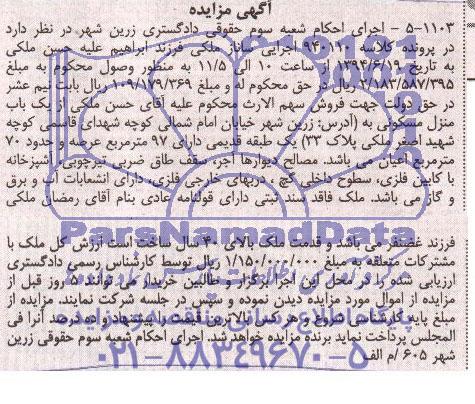 آگهی مزایده
۵-۱۱۰۳ - اجرای احکام شعبه سوم حقوقی دادگستری زرین شهر در نظر دارد
در پرونده کلاسه ۹۴۰۱۹۰ اجرایی ساناز ملکی فرزند ابراهیم علیه حسن ملکی
به تاریخ ۱۳۹۴/۶/۱۹ از ساعت ۱۰ الی ۱۱/۵ به منظور وصول محکوم به مبلغ
۲/۱۸۳/۵۸۷/۳۹۵ ریال در حق محکوم له و مبلغ ۱۰۹/۱۷۹/۳۶۹ ریال بابت نیم عشر
در حق دولت جهت فروش سهم الارث محکوم علیه آقای حسن ملکی از یک باب
منزل مسکونی به (آدرس: زرین شهر خیابان امام شمالی کوچه شهدای قاسمی کوچه
شهید اصغر ملکی پلاک ۳۳) یک طبقه قدیمی دارای ۹۷ مترمربع عرصه و حدود ۷۰
مترمربع اعیان می باشد. مصالح دیوارها آجر، سقف طاق ضربی تیرچوبی، آشپزخانه
با کابین فلزی، سطوح داخلی گچ، دربهای خارجی فلزی، دارای انشعابات آب و برق
و گاز می باشد. ملک فاقد سند ثبتی دارای قولنامه عادی بنام آقای رمضان ملکی
فرزند غضنفر می باشد و قدمت ملک بالای ۴۰ سال ساخت است ارزش کل ملک با
مشترکات متعلقه به مبلغ ۱/۱۵۰/۰۰۰/۰۰۰ ریال توسط کارشناس رسمی دادگستری
ارزیابی شده را در محل این اجرا برگزار نماید. طالبین خریدار می توانند ۵ روز قبل از
مزایده از اموال مورد مزایده دیدن نموده و سپس در جلسه شرکت نمایند. مزایده از
مبلغ پایه کارشناسی شروع و هر کس بالاترین قیمت را پیشنهاد و ده درصد آنرا فی
المجلس پرداخت نماید برنده مزایده خواهد شد. اجرای احکام شعبه سوم حقوقی زرین
شهر ۶۰۵ /م الف
ParsNamadData
پایگاه اطلاع رسانی مناقصه و مزایده
۰۲۱-۸۸۳۴۹۶۷۰-۵